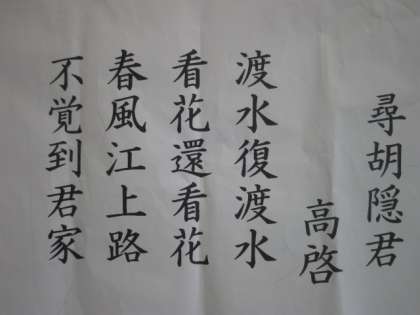 尋胡隠君
高啓
渡水復渡水
看花還看花
春風江上路
不覚到君家